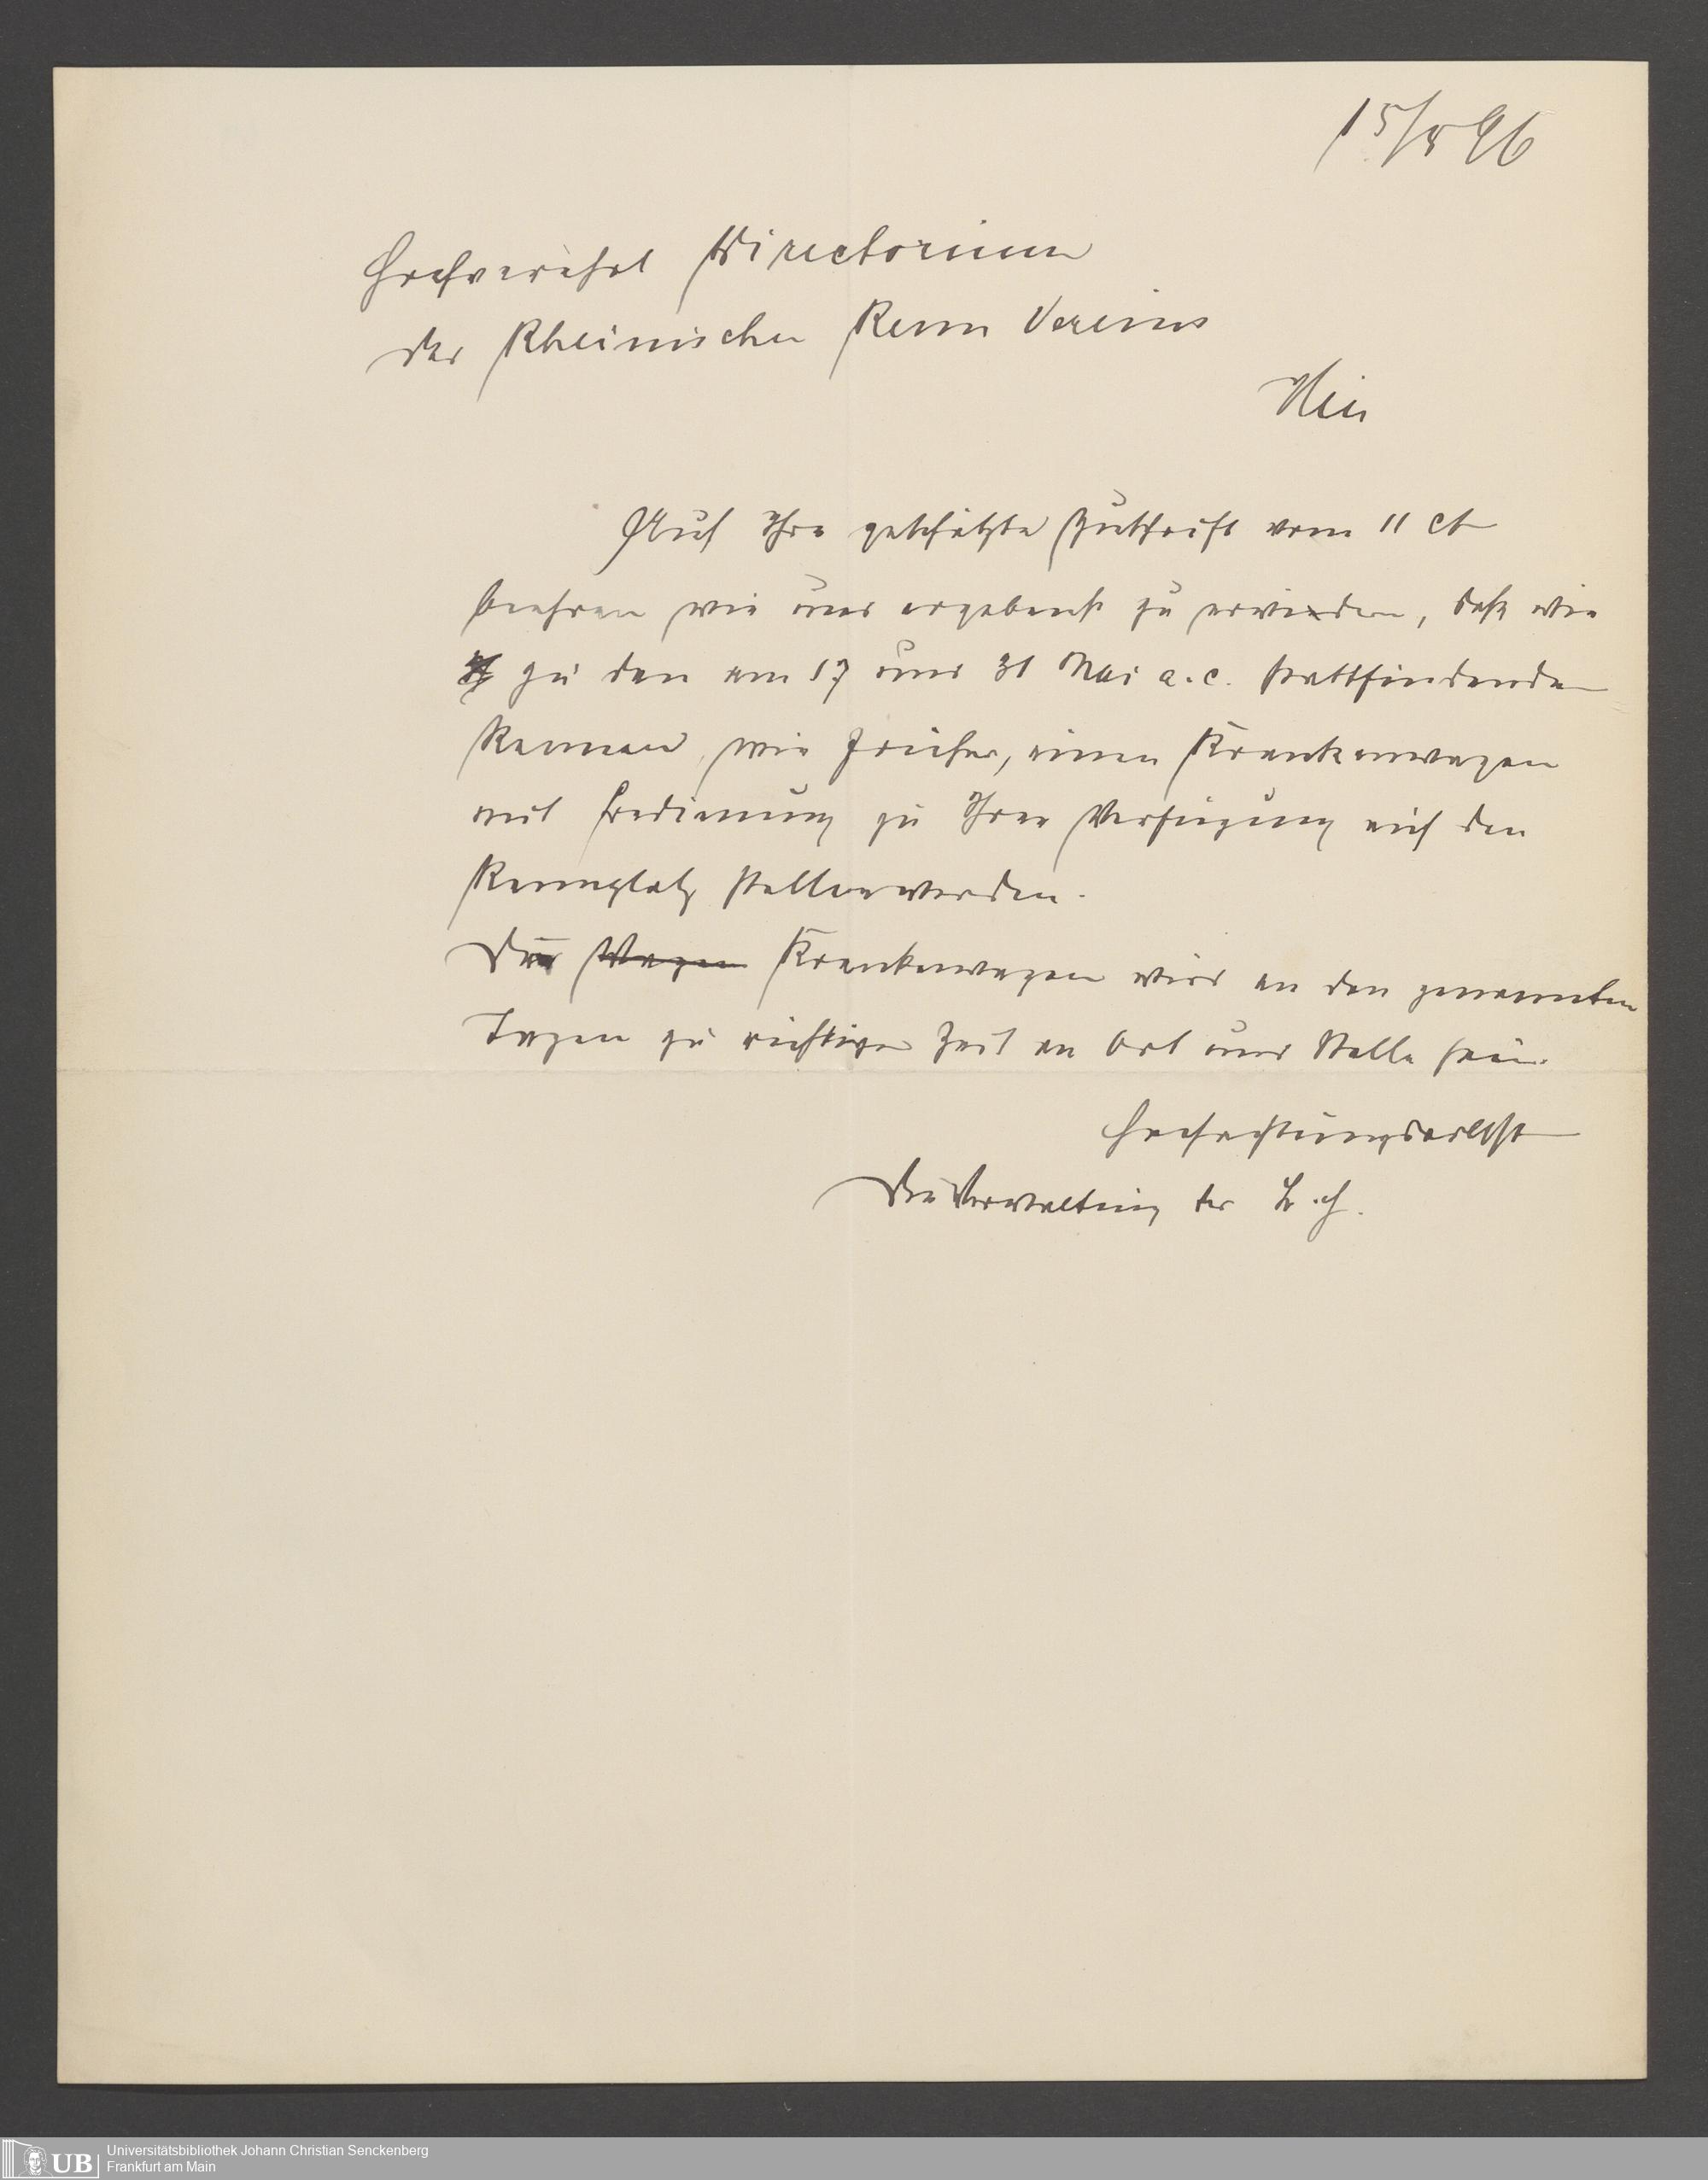 15/5 96
Hochverehrl Directorium
des Rheinischen Renn Vereins
Hier
Auf Ihre geschätzte Zuschrift vom 11 ct
beehren wir uns ergebenst zu erwidern, daß wir
zu den am 17 und 31 Mai a. c. stattfindenden
Rennen, wie früher, einen Krankenwagen
mit Bedienung zu Ihrer Verfügung auf den
Rennplatz stellen werden.
Der Wagen Krankenwagen wird an den genannten
Tagen zu richtiger Zeit an Ort und Stelle sein.
Hochachtungsvollst
Die Verwaltung des
Universitätsbibliothek Johann Christian Senckenberg
Frankfurt am Main
UB